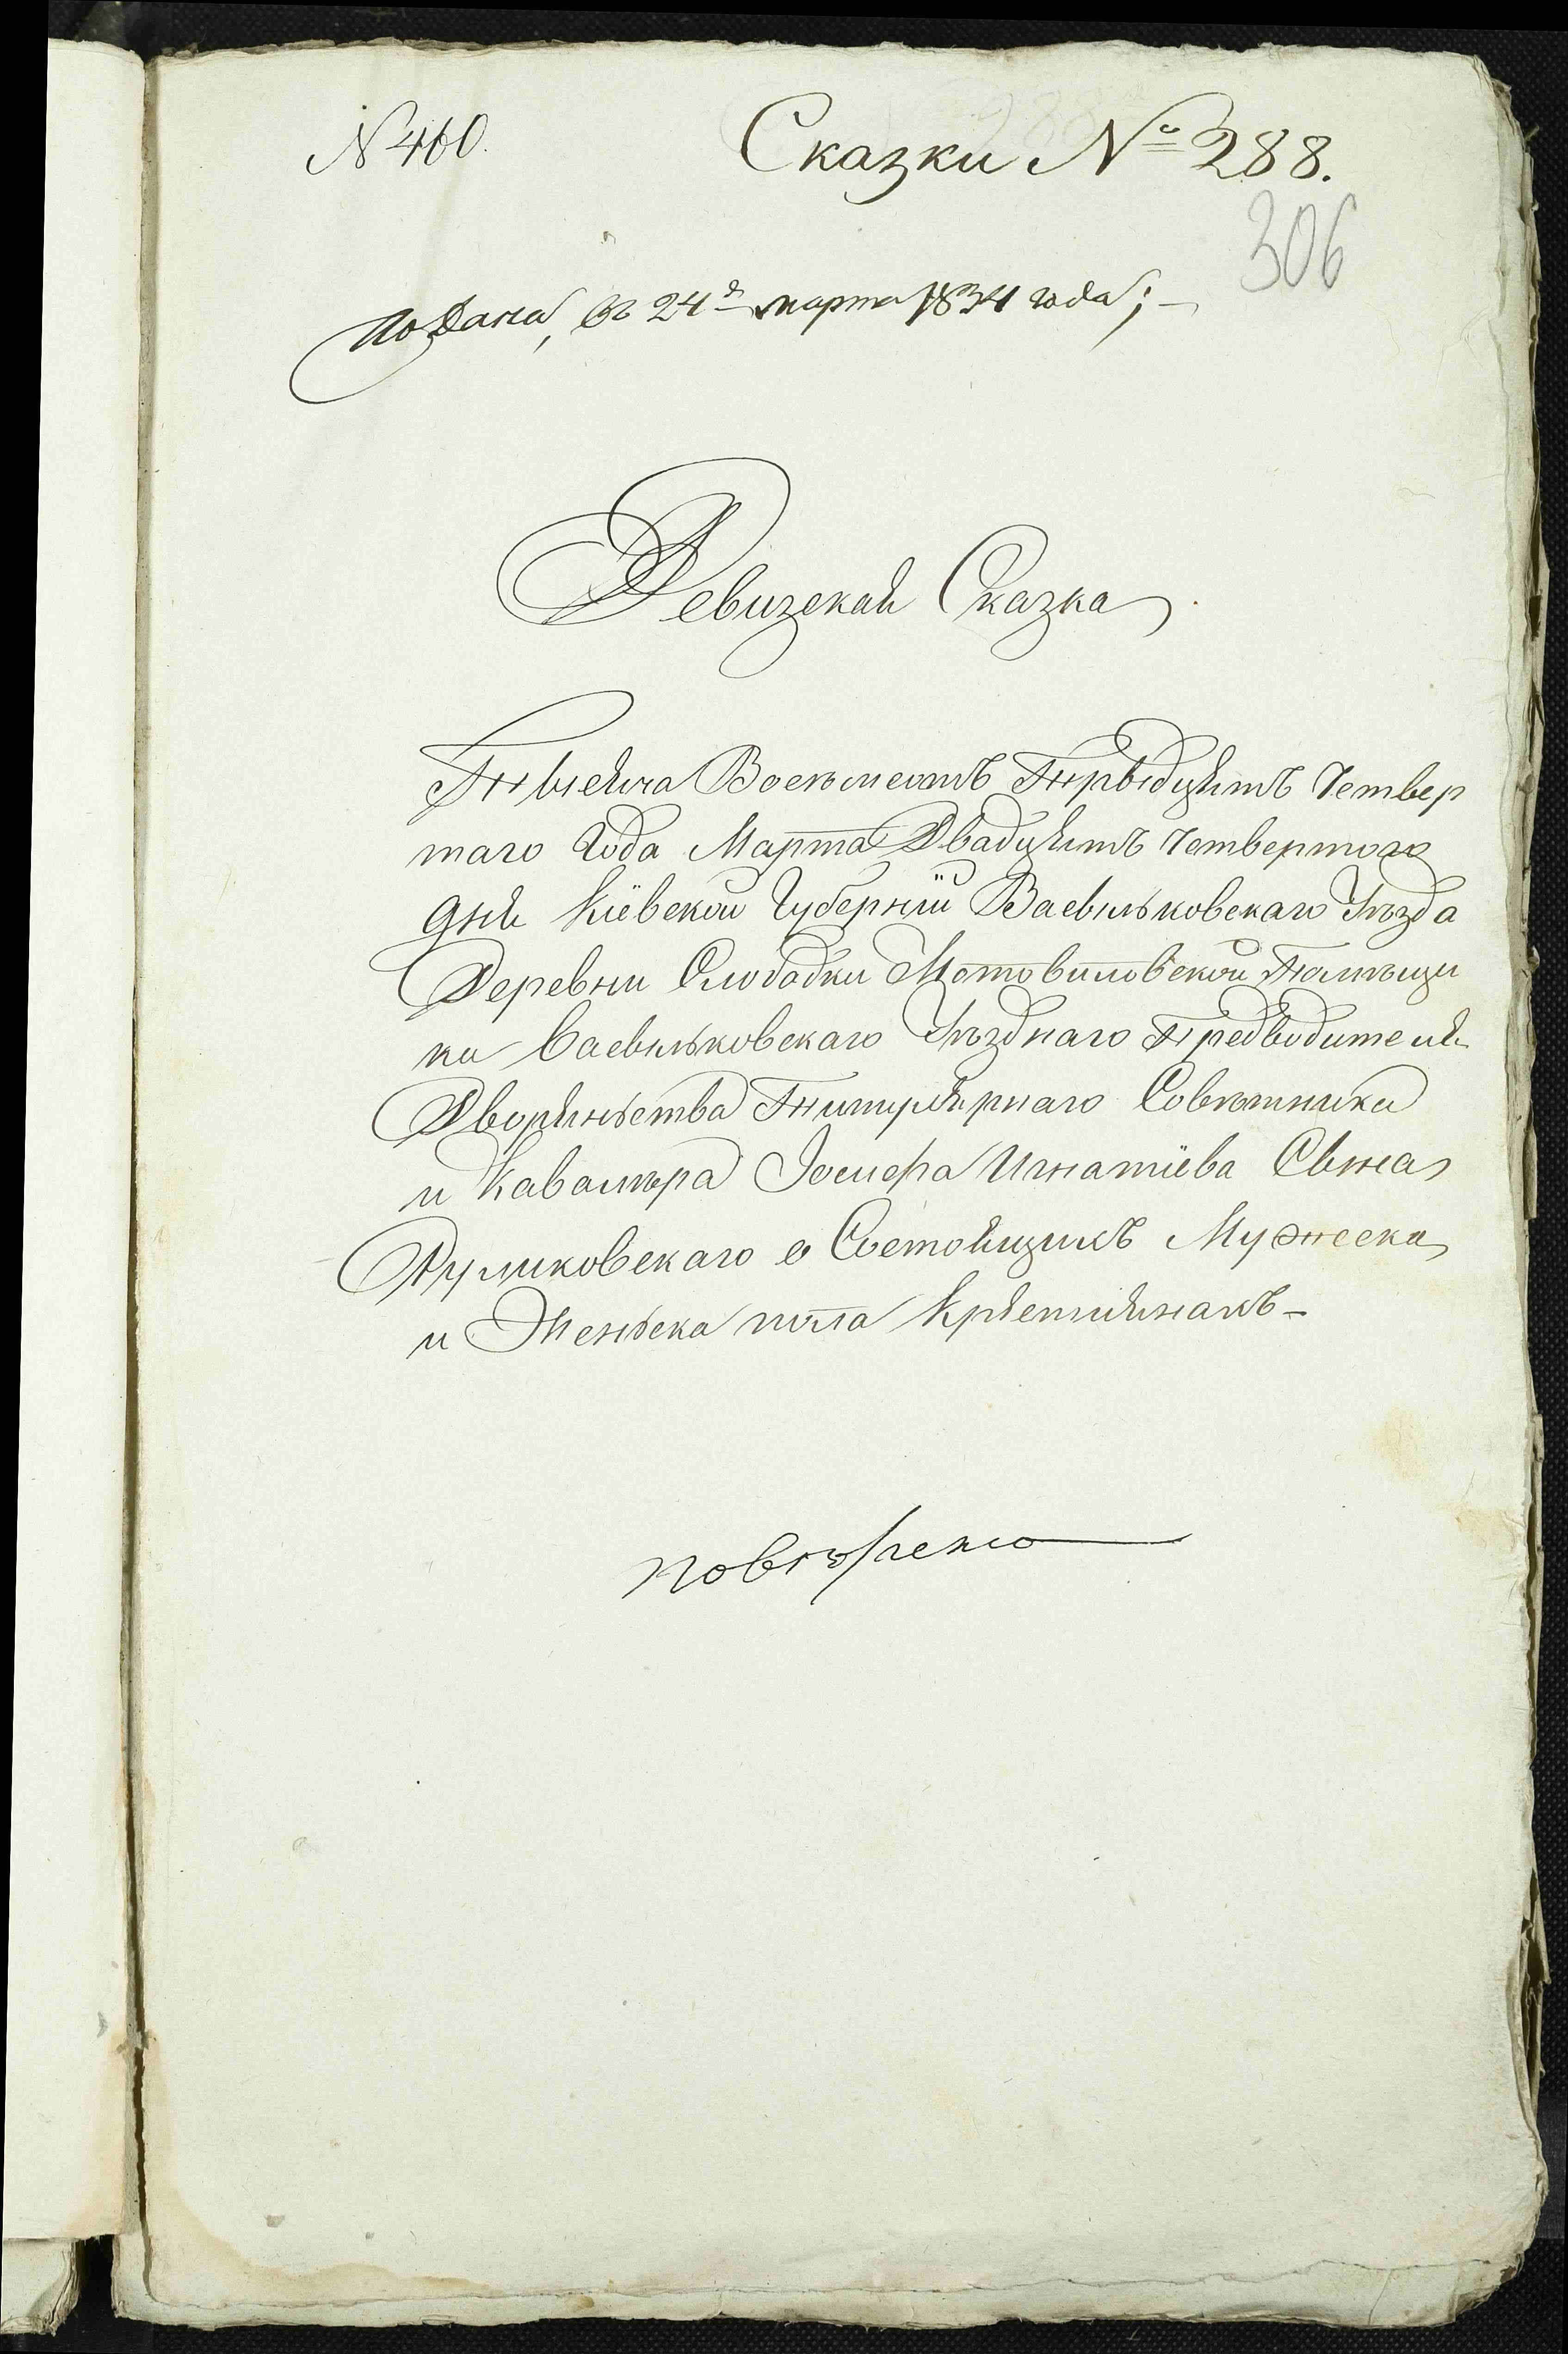 N 460.
Сказки № 288.
306
Подана, въ 24й марта 1834 года;-
Ревизская Сказка
Тысяча Восемсотъ Тридцять Четвер
таго Года Марта Двадцять Четвертого
дня Кіевской Губерніи Васильковскаго Уѣзда
Деревни Слободки Мотовиловской Помѣщи
ка Васильковскаго Уѣзднаго Предводителя
Дворянства Титулярнаго Совѣтника
и Кавалѣра Іосифа Игнатіева Сына
Руликовскаго о Состоящихъ Мужеска
и Женьска пола Крестянахъ-
повѣрено